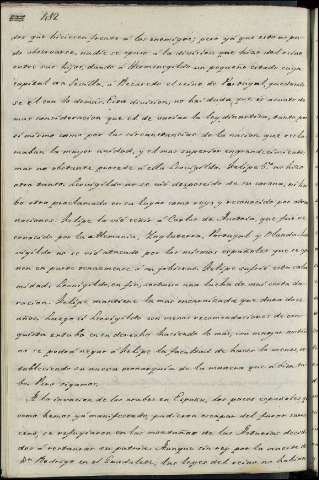 482
dos que hicieron frente á los enemigos; pero ya que esto no pu-
do observarse, nadie se opuso á la division que hizo del reino
entre sus hijos, dando á Hermenegildo un pequeño estado cuya
capital era Sevilla, á Recaredo el reino de Portugal, quedando
se él con lo demás. Esta division, no hai duda, que es asunto de
mas consideracion que el de variar la ley dinastica, tanto por
si mismo como por las circunstancias de la nacion que recla-
maban la mayor unidad, y el mas superior engrandecimiento:
mas no obstante procede á ella Leovigildo. Felipe 5º no hizo
otro tanto. Leovigildo no se vió desposeido de su corona, ni hu-
bo otro proclamado en su lugar como rey y reconocido por otras
naciones. Felipe la vió ceñir á Carlos de Austria, que fué re-
conocido por la Alemania, Inglaterra, Portugal y Olanda. Leo-
vigildo no se vió atacado por los mismos españoles que se po-
nen en parte Felipe sufrió esta cala-
midad. Leovigildo, en fin, sostuvo una lucha de mui corta du-
racion. Felipe mantiene la mas encarnizada que dura doce
años; luego si Leovigildo con menos recomendaciones de con-
quista estaba en su derecho haciendo lo más, con mayor motivo
no se podrá negar á Felipe la facultad de hacer lo menos, es-
tableciendo su nueva monarquia de la manera que á bien tu-
bo. Pero sigamos.
A la invasion de los arabes en España, los pocos españoles que
como hemos ya manifestado, pudieron escapar del furor sarra-
ceno, se refugiaron en las montañas de las Asturias decidi-
dos á restaurar su patria. Aunque sin rey por la muerte de
Dn Rodrigo en el Guadalete, las leyes del reino no habian